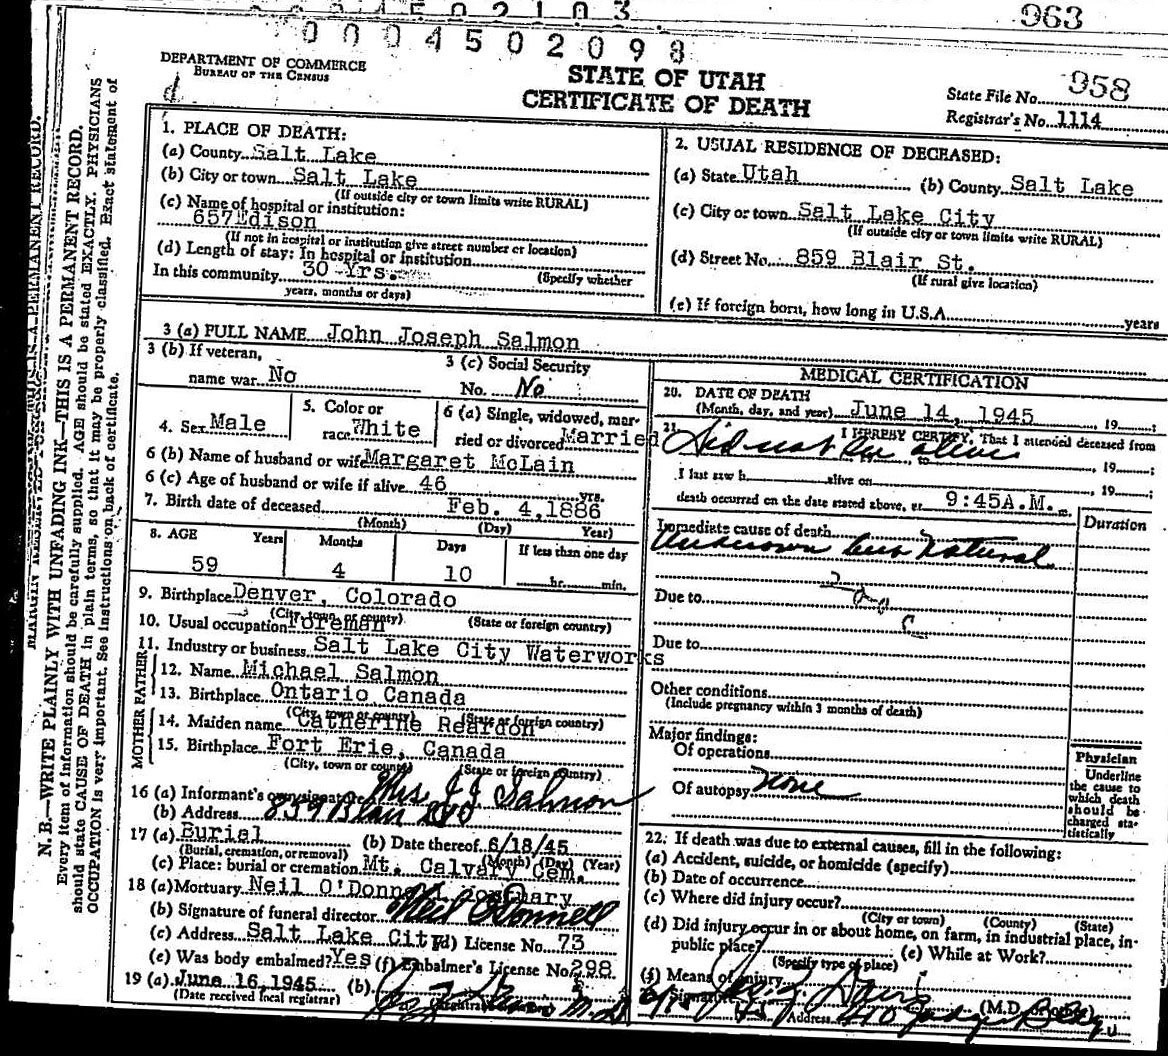 963
0004502098
DEPARTMENT OF COMMERCE
BUREAU OF THE CENSUS
STATE OF UTAH
CERTIFICATE OF DEATH
State File No. 958
Registrar's No. 1114
MARGIN RESERVED
N. B.—WRITE PLAINLY WITH UNFADING INK—THIS IS A PERMANENT RECORD.
Every item of information should be carefully supplied. AGE should be stated EXACTLY. PHYSICIANS
should state CAUSE OF DEATH in plain terms, so that it may be properly classified. Exact statement of
OCCUPATION is very important. See instructions on back of certificate.
1. PLACE OF DEATH:
(a) County Salt Lake
(b) City or town Salt Lake
(If outside city or town limits write RURAL)
(c) Name of hospital or institution:
657 Edison
(If not in hospital or institution give street number or location)
(d) Length of stay: In hospital or institution
In this community 30 Yrs. (Specify whether
years, months or days)
2. USUAL RESIDENCE OF DECEASED:
(a) State Utah (b) County Salt Lake
(c) City or town Salt Lake City
(If outside city or town limits write RURAL)
(d) Street No. 859 Blair St.
(If rural give location)
(e) If foreign born, how long in U.S.A. years
3 (a) FULL NAME John Joseph Salmon
3 (b) If veteran,
name war No
3 (c) Social Security
No. No
4. Sex Male
5. Color or
race White
6 (a) Single, widowed, mar-
ried or divorced Married
6 (b) Name of husband or wife Margaret McLain
6 (c) Age of husband or wife if alive 46 yrs.
7. Birth date of deceased Feb. 4, 1886
(Month) (Day) Year)
8. AGE Years Months Days If less than one day
59 4 10 hr. min.
9. Birthplace Denver, Colorado
(City, town or county) (State or foreign country)
10. Usual occupation Foreman
11. Industry or business Salt Lake City Waterworks
FATHER
12. Name Michael Salmon
13. Birthplace Ontario Canada
(City, town or county) (State or foreign country)
MOTHER
14. Maiden name Catherine Reardon
15. Birthplace Fort Erie, Canada
(City, town or county) (State or foreign country)
16 (a) Informant's own signature Mrs J J Salmon
(b) Address 859 Blair
17 (a) Burial (b) Date thereof 6/18/45
(Burial, cremation, or removal) (Month) (Day) (Year)
(c) Place: burial or cremation Mt. Calvary Cem.
18 (a) Mortuary Neil O'Donnell
(b) Signature of funeral director Neil O'Donnell
(c) Address Salt Lake City (d) License No. 73
(e) Was body embalmed? Yes (f) Embalmer's License No. 298
19 (a) June 16, 1945 (b) M.D.
(Date received local registrar)
MEDICAL CERTIFICATION
20. DATE OF DEATH
(Month, day, and year) June 14, 1945, 19
21. I HEREBY CERTIFY, That I attended deceased from
Did not see alive to , 19 ;
I last saw h alive on , 19 ;
death occurred on the date stated above, at 9:45A.M. m.
Immediate cause of death Duration
Unknown but natural
Due to 200 c
Due to
Other conditions
(Include pregnancy within 3 months of death)
Major findings:
Of operations
Of autopsy none
Physician
Underline
the cause to
which death
should be
charged sta-
tistically
22. If death was due to external causes, fill in the following:
(a) Accident, suicide, or homicide (specify)
(b) Date of occurrence
(c) Where did injury occur?
(City or town) (County) (State)
(d) Did injury occur in or about home, on farm, in industrial place, in-
public place? (e) While at Work?
(Specify type of place)
(f) Means of injury
Signature (M.D. or other)
Address 410 Judge Bldg